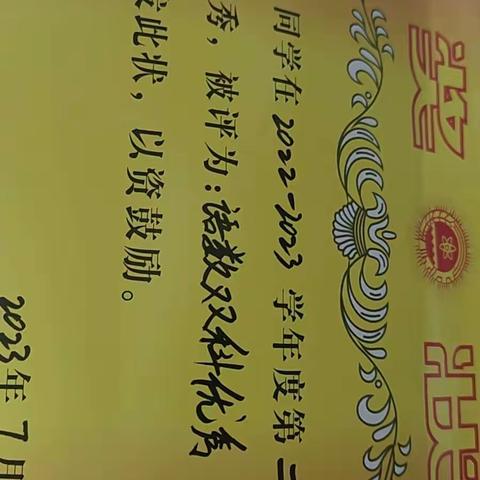 奖 状
同学在2022-2023学年度第二
秀，被评为：语数双科优秀
发此状，以资鼓励。
2023年7月